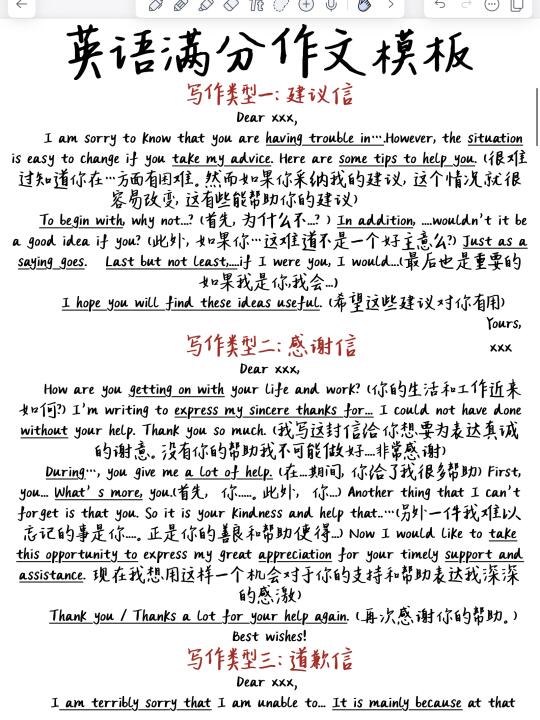 英语满分作文模板
写作类型一：建议信
Dear xxx,
I am sorry to know that you are having trouble in….However, the situation
is easy to change if you take my advice. Here are some tips to help you. (很难
过知道你在…方面有困难。然而如果你采纳我的建议, 这个情况就很
容易改变, 这有些能帮助你的建议)
To begin with, why not…? (首先, 为什么不…? ) In addition, ….wouldn't it be
a good idea if you? (此外, 如果你…这难道不是一个好主意么?) Just as a
saying goes. Last but not least,….if I were you, I would…(最后也是重要的
如果我是你,我会…)
I hope you will find these ideas useful. (希望这些建议对你有用)
Yours,
xxx
写作类型二：感谢信
Dear xxx,
How are you getting on with your life and work? (你的生活和工作近来
如何?) I'm writing to express my sincere thanks for… I could not have done
without your help. Thank you so much. (我写这封信给你想要为表达真诚
的谢意。没有你的帮助我不可能做好….非常感谢)
During…, you give me a lot of help. (在…期间, 你给了我很多帮助) First,
you… What's more, you.(首先, 你….. 此外, 你…) Another thing that I can't
forget is that you. So it is your kindness and help that..…(另外一件我难以
忘记的事是你….. 正是你的善良和帮助使得…) Now I would like to take
this opportunity to express my great appreciation for your timely support and
assistance. 现在我想用这样一个机会对于你的支持和帮助表达我深深
的感激)
Thank you / Thanks a lot for your help again. (再次感谢你的帮助。)
Best wishes!
写作类型三：道歉信
Dear xxx,
I am terribly sorry that I am unable to… It is mainly because at that